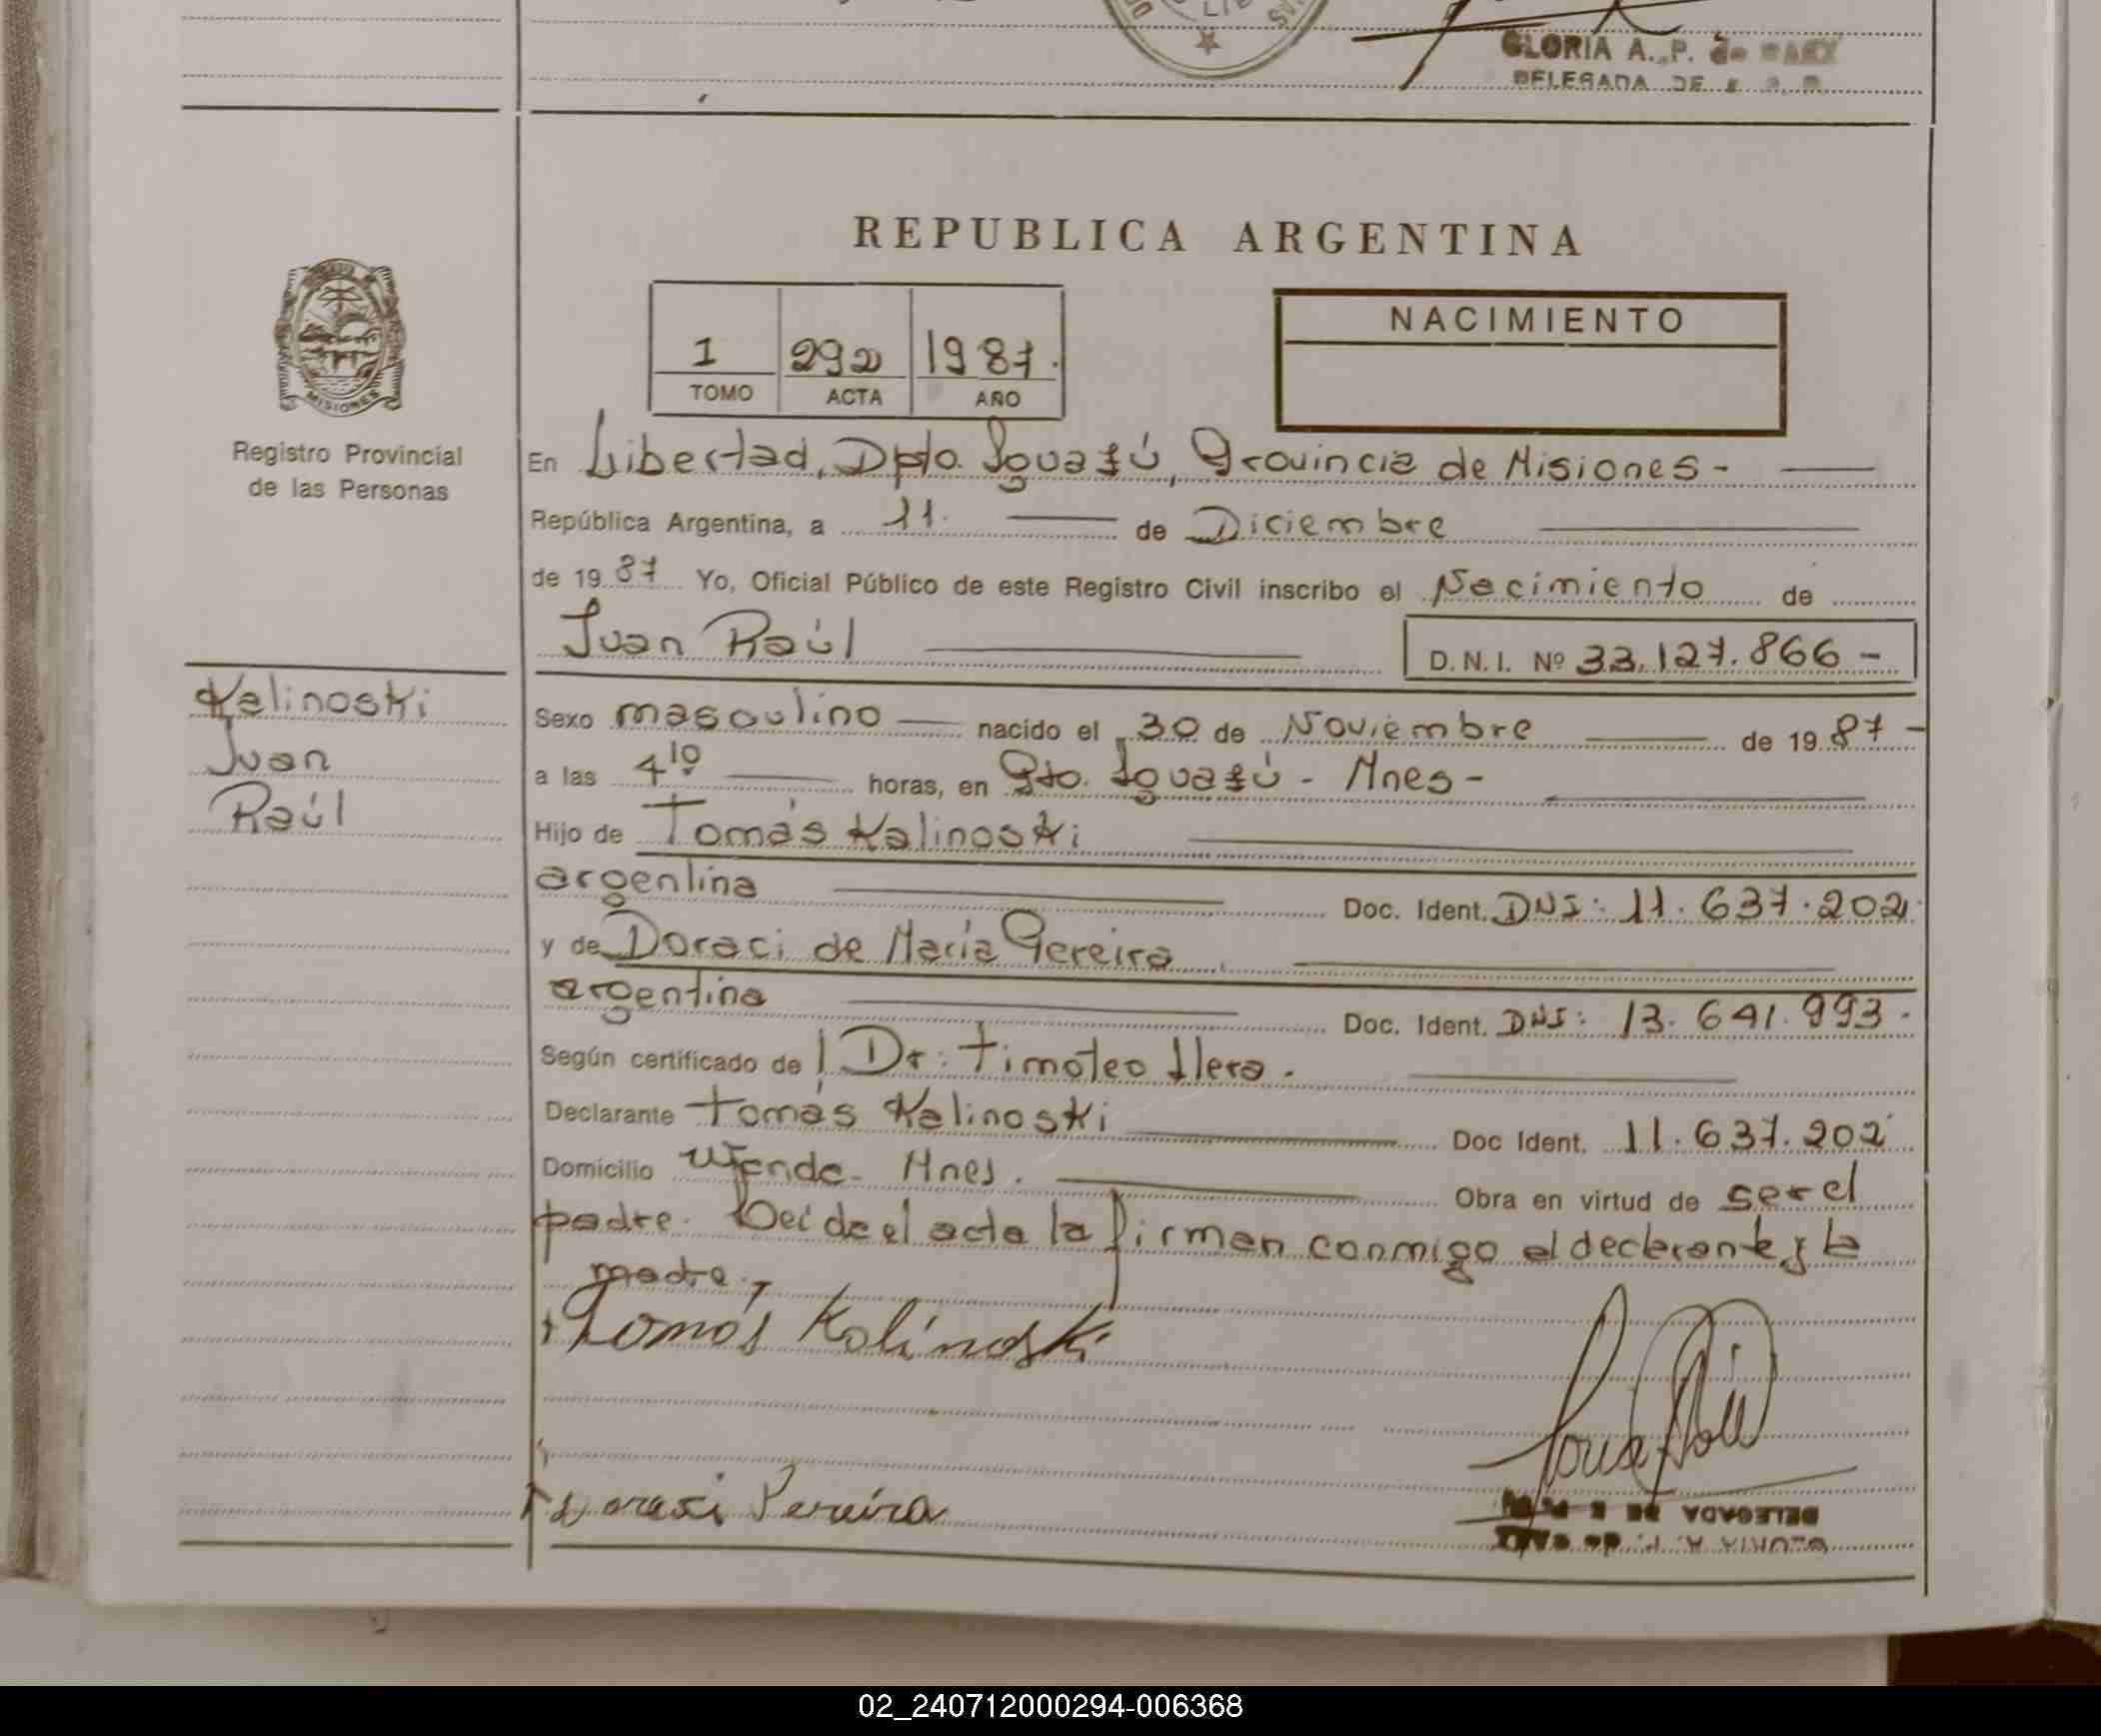 LIB
GLORIA A. P. de BAEX
DELEGADA DE
REPUBLICA ARGENTINA
1 292 1987.
TOMO ACTA AÑO
NACIMIENTO
MISIONES
Registro Provincial
de las Personas
En Libertad, Dpto. Iguazú, Provincia de Misiones -
República Argentina, a 11. de Diciembre
de 1987 Yo, Oficial Público de este Registro Civil inscribo el Nacimiento de
Juan Raúl D.N.I. Nº 33.127.866 -
Kalinoski
Juan
Raúl
Sexo masculino nacido el 30 de Noviembre de 1987 -
a las 4 10 horas, en Pto. Iguazú - Mnes -
Hijo de Tomás Kalinoski
argentina Doc. Ident. DNI: 11.637.202
y de Doraci de María Pereira
argentina Doc. Ident. DNI: 13.641.993.
Según certificado de l Dr: Timoteo Llera.
Declarante Tomás Kalinoski Doc Ident. 11.637.202
Domicilio Wanda - Mnes. Obra en virtud de ser el
padre. Leída el acta la firman conmigo el declarante y la
madre.
Tomás Kalinoski
Doraci Pereira
DELEGADA DE
GLORIA A. P. de BAEX
02_240712000294-006368